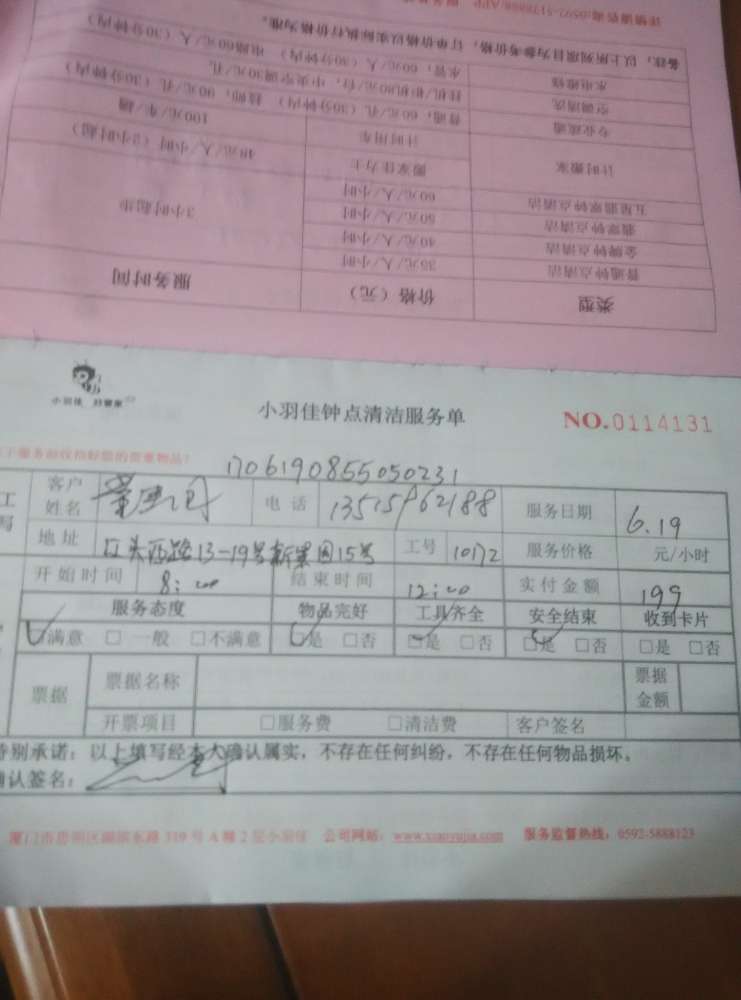 备注:以上所列项目为参考价格,订单价格以实际执行价格为准。
水电维修 水管:60元/人(30分钟内) 电路60元/人(30分钟内)
空调清洗 挂机/柜机80元/台,中央空调30元/孔
专业疏通 普通:60元/孔(30分钟内)
计时搬家 搬家佳力士 48元/人/小时(2小时起)
计时用车 100元/车/趟
五星翡翠钟点清洁 60元/人/小时
翡翠钟点清洁 50元/人/小时
金牌钟点清洁 40元/人/小时
普通钟点清洁 35元/人/小时 3小时起步
类型 价格(元) 服务时间
小羽佳 好管家
小羽佳钟点清洁服务单
NO.0114131
1706190855050231
客户姓名 电话 服务日期 6.19
地址 工号 10172 服务价格 元/小时
开始时间 8:00 结束时间 12:00 实付金额 199
服务态度 物品完好 工具齐全 安全结束 收到卡片
满意 □一般 □不满意 是 □否 □是 □否 □是 □否 □是 □否
票据 票据名称 票据金额
开票项目 □服务费 □清洁费 客户签名
特别承诺:以上填写经本人确认属实,不存在任何纠纷,不存在任何物品损坏。
确认签名:
公司网站:www.xiaoyujia.com 服务监督热线:0592-5888123